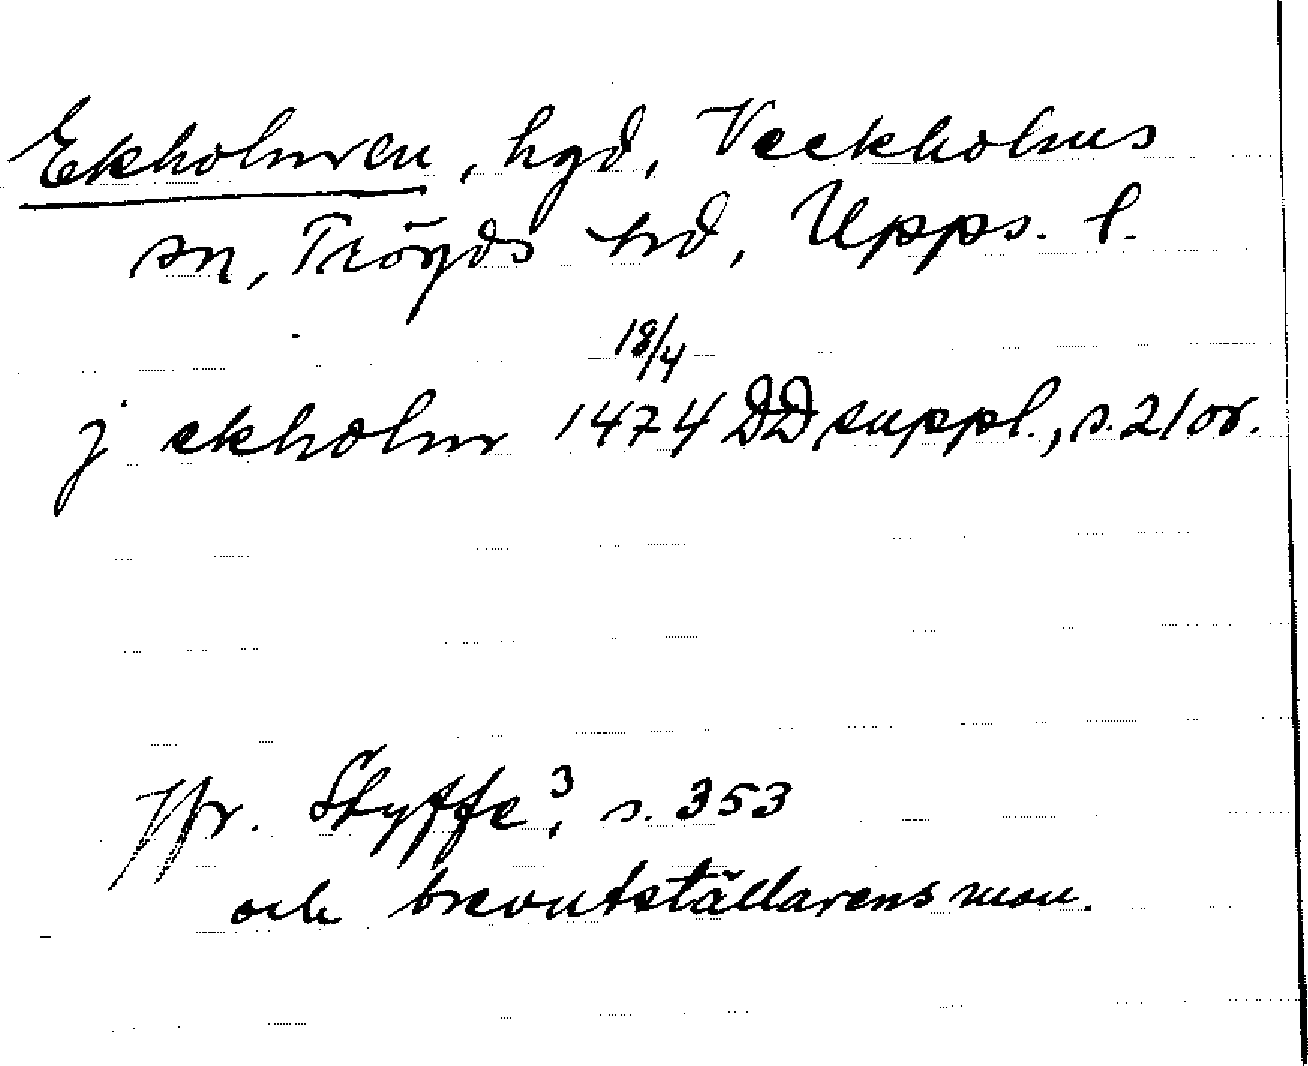 Ekholmen, hgd, Veckholms
sn, Trögds hd, Upps. l.
18/4
j ekholm 1474 DD suppl., s. 21 or.
Jfr. Styffe³, s. 353
och brevutställarens man.